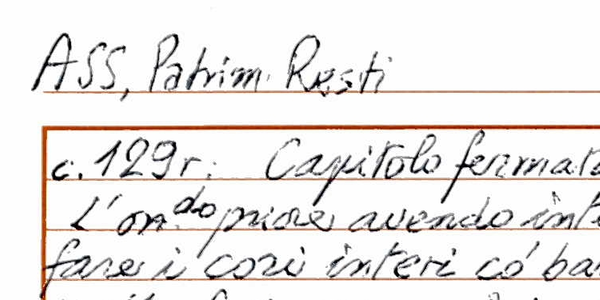 ASS, Patrim. Resti
c. 129r: Capitolo fermat
L'on.do priore avendo int
fare i cori interi có ba